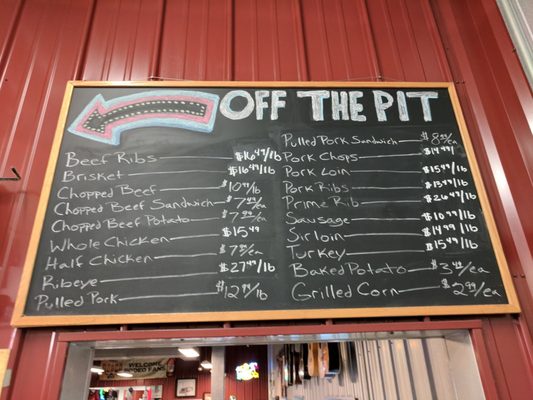 OFF THE PIT
Beef Ribs $16.49/lb
Brisket $16.49/lb
Chopped Beef $10.99/lb
Chopped Beef Sandwich $7.49/ea
Chopped Beef Potato $7.99/ea
Whole Chicken $15.49
Half Chicken $7.85/ea
Ribeye $27.49/lb
Pulled Pork $12.99/lb
Pulled Pork Sandwich $8.49/ea
Pork Chops $14.99/
Pork Loin $15.99/lb
Pork Ribs $15.99/lb
Prime Rib $26.49/lb
Sausage $10.99/lb
Sirloin $14.99/lb
Turkey $15.49/lb
Baked Potato $3.49/ea
Grilled Corn $2.99/ea
WELCOME
RODEO FANS